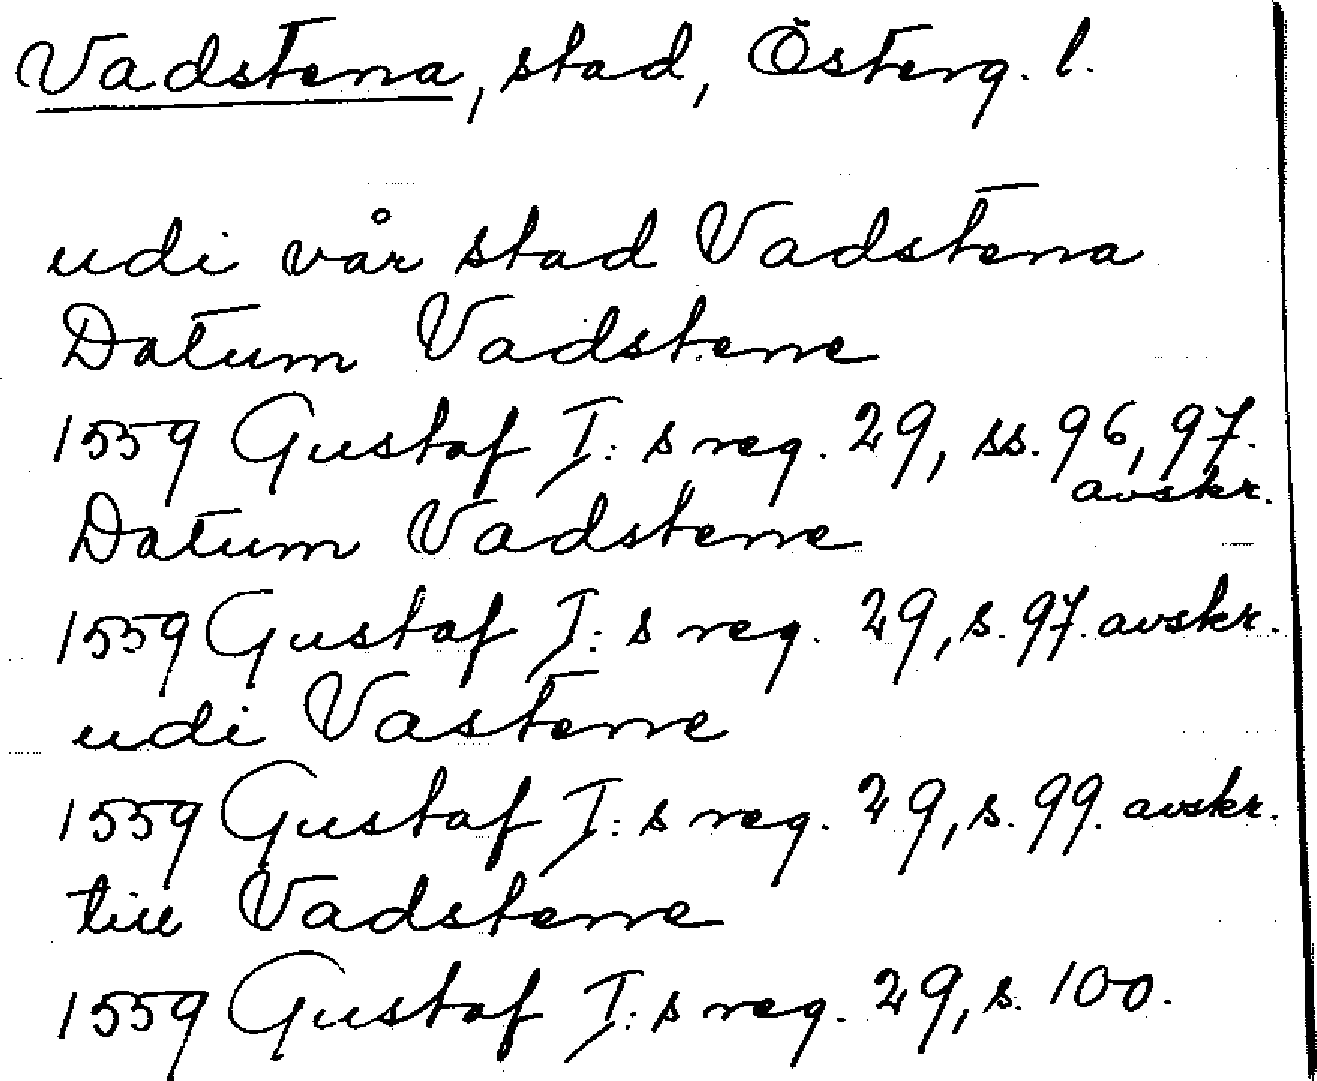 Vadstena, stad, Österg. l.
udi vår stad Vadstena
Datum Vadstene
1559 Gustaf I: s reg. 29, ss. 96, 97.
avskr.
Datum Vadstene
1559 Gustaf I: s reg. 29, s. 97. avskr.
udi Vastene
1559 Gustaf I: s reg. 29, s. 99. avskr.
till Vadstene
1559 Gustaf I: s reg. 29, s. 100.